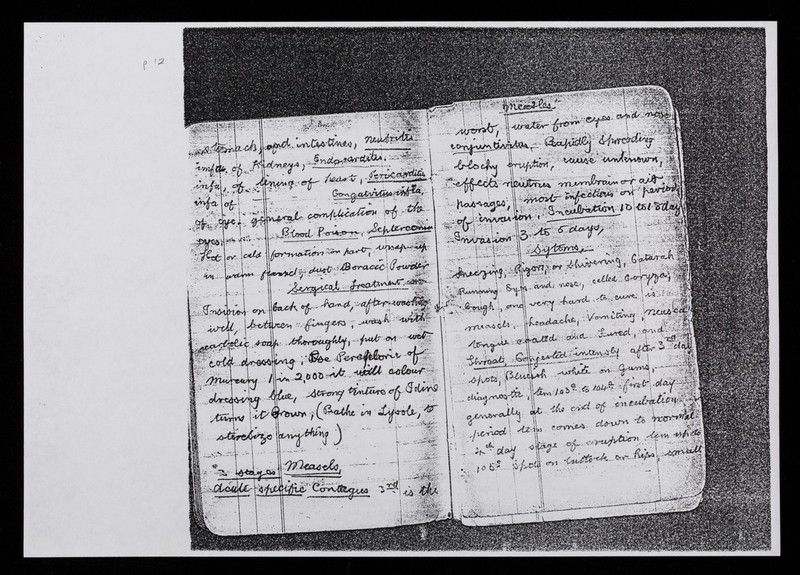 p 12
stomach, and intistines, neubritis
infla, of Kidneys, Endocarditis.
infa, of lining of heart, Pericarditis
infa of Congatvitus infla,
of eye. general complication of the
eyes. Blood Poison, Septercemia
Hot or cold formation on part, wrap up
in warm flannel, dust Boracic Powder
Sergical Treatment
Insision on back of hand, after washing
well, between fingers, wash with
carbolic soap thoroughly, put on wet
cold dressing, Use Percelorie of
Mercury 1 in 2,000 it will colour
dressing blue, strong tinture of Idine
turns it Brown, (Bathe in Lysole, to
sterelize anything)
3 stages Measels,
Acute specific Contegues 3rd is the
Measles
worst, water from eyes and nose
conjuntivitas, Rapidly Spreading
blochy eruption, cause unknown,
effects neutrius membrain or air
passages, most infectious on period
of invasion, Incubation 10 to 18 day
Invasion 3 to 5 days,
Sytoms,
Sneezing, Rigors, or Shivering, Catarah
Running Eyes and nose, called Coryza,
Cough, one very hard to cure is
measels, headache, Vomiting, Musca
tongue coated and Fured, and
Throat, Congested intensly after 3rd day
spots, Blueish white on Gums,
diagnostic, tem 103° to 104° first day
generally at the end of incubation
period tem comes down to normal
4th day stage of eruption tem up to
105° Spots on Buttock or Hips, small